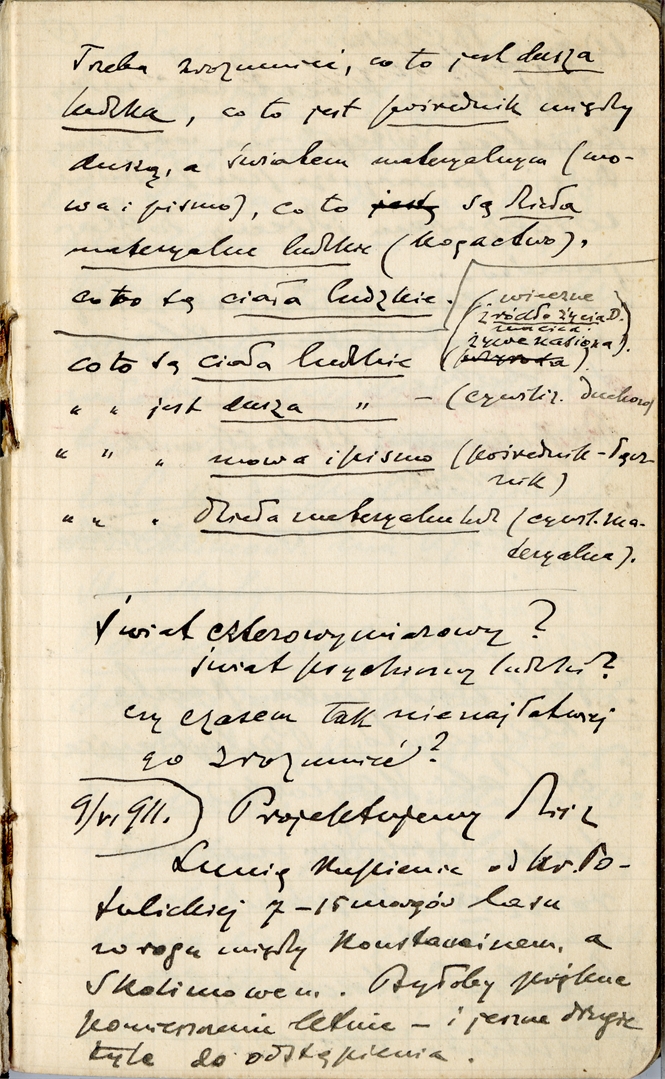 Trzeba zrozumieć, co to jest dusza
ludzka, co to jest pośrednik między
duszą, a światem materyalnym (mo-
wa i pismo), co to jest są dzieła
materyalne ludzkie (bogactwo).
co to są ciała ludzkie.
(wieczne
źródło życia D.
macica.
żywe nasiona).
co to są ciała ludzkie (przyroda)
„ „ jest dusza „ – (cywiliz. duchowa)
„ „ „ mowa i pismo (pośrednik – łącz-
nik)
„ „ „ dzieła materyalne ludz (cywil. ma-
teryalna).
Świat czterowymiarowy?
świat psychiczny ludzki?
czy czasem tak nienajłatwiej
go zrozumieć?
9/VI 911. Projektujemy dziś z
Lunią kupienie od Hr. Po-
tulickiej 7–15 morgów lasu
w rogu między Konstancinem, a
Skolimowem. Byłoby piękne
pomieszczenie letnie – i jeszcze drugie
tyle do odstąpienia.